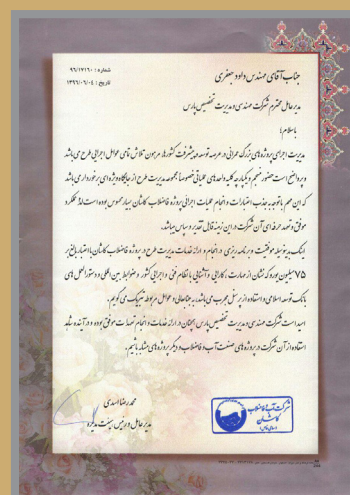 شماره : ۹۶/۱۷۱۶۰
تاریخ : ۱۳۹۶/۰۶/۰۴
جناب آقای مهندس داود جعفری
مدیرعامل محترم شرکت مهندسی و مدیریت تخصیص پارس
با سلام؛
مدیریت اجرای پروژه‌های بزرگ عمرانی در عرصه توسعه و پیشرفت کشورها، مرهون تلاش تمامی عوامل اجرایی طرح می‌باشد
و پر واضح است حضور منسجم و یکپارچه کلیه واحدهای عملیاتی خصوصا مجموعه مدیریت طرح از جایگاه ویژه‌ای برخوردار می‌باشد
که این مهم با توجه به جذب اعتبارات و انجام عملیات اجرائی پروژه فاضلاب کاشان بسیار محسوس بوده است لذا عملکرد
موفق و تعهد حرفه‌ای آن شرکت در این زمینه قابل تقدیر و سپاس میباشد.
اینک بدینوسیله موفقیت و برنامه ریزی در انجام و ارائه خدمات مدیریت طرح در پروژه فاضلاب کاشان با اعتبار بالغ بر
۷۵ میلیون یورو که نشان از مهارت، کارایی و آشنایی با نظام فنی و اجرائی کشور و ضوابط بین المللی و دستورالعمل های
بانک توسعه اسلامی و استفاده از پرسنل مجرب می باشد، به جنابعالی و عوامل مربوطه تبریک می گویم.
امید است شرکت مهندسی و مدیریت تخصیص پارس همچنان در ارائه خدمات و انجام تعهدات موفق بوده و در آینده شاهد
استفاده از آن شرکت در پروژه های صنعت آب و فاضلاب و دیگر پروژه های مشابه باشیم.
محمدرضا اسدی
مدیرعامل و رئیس هیئت مدیره
شرکت آب و فاضلاب
کاشان
(سهامی خاص)